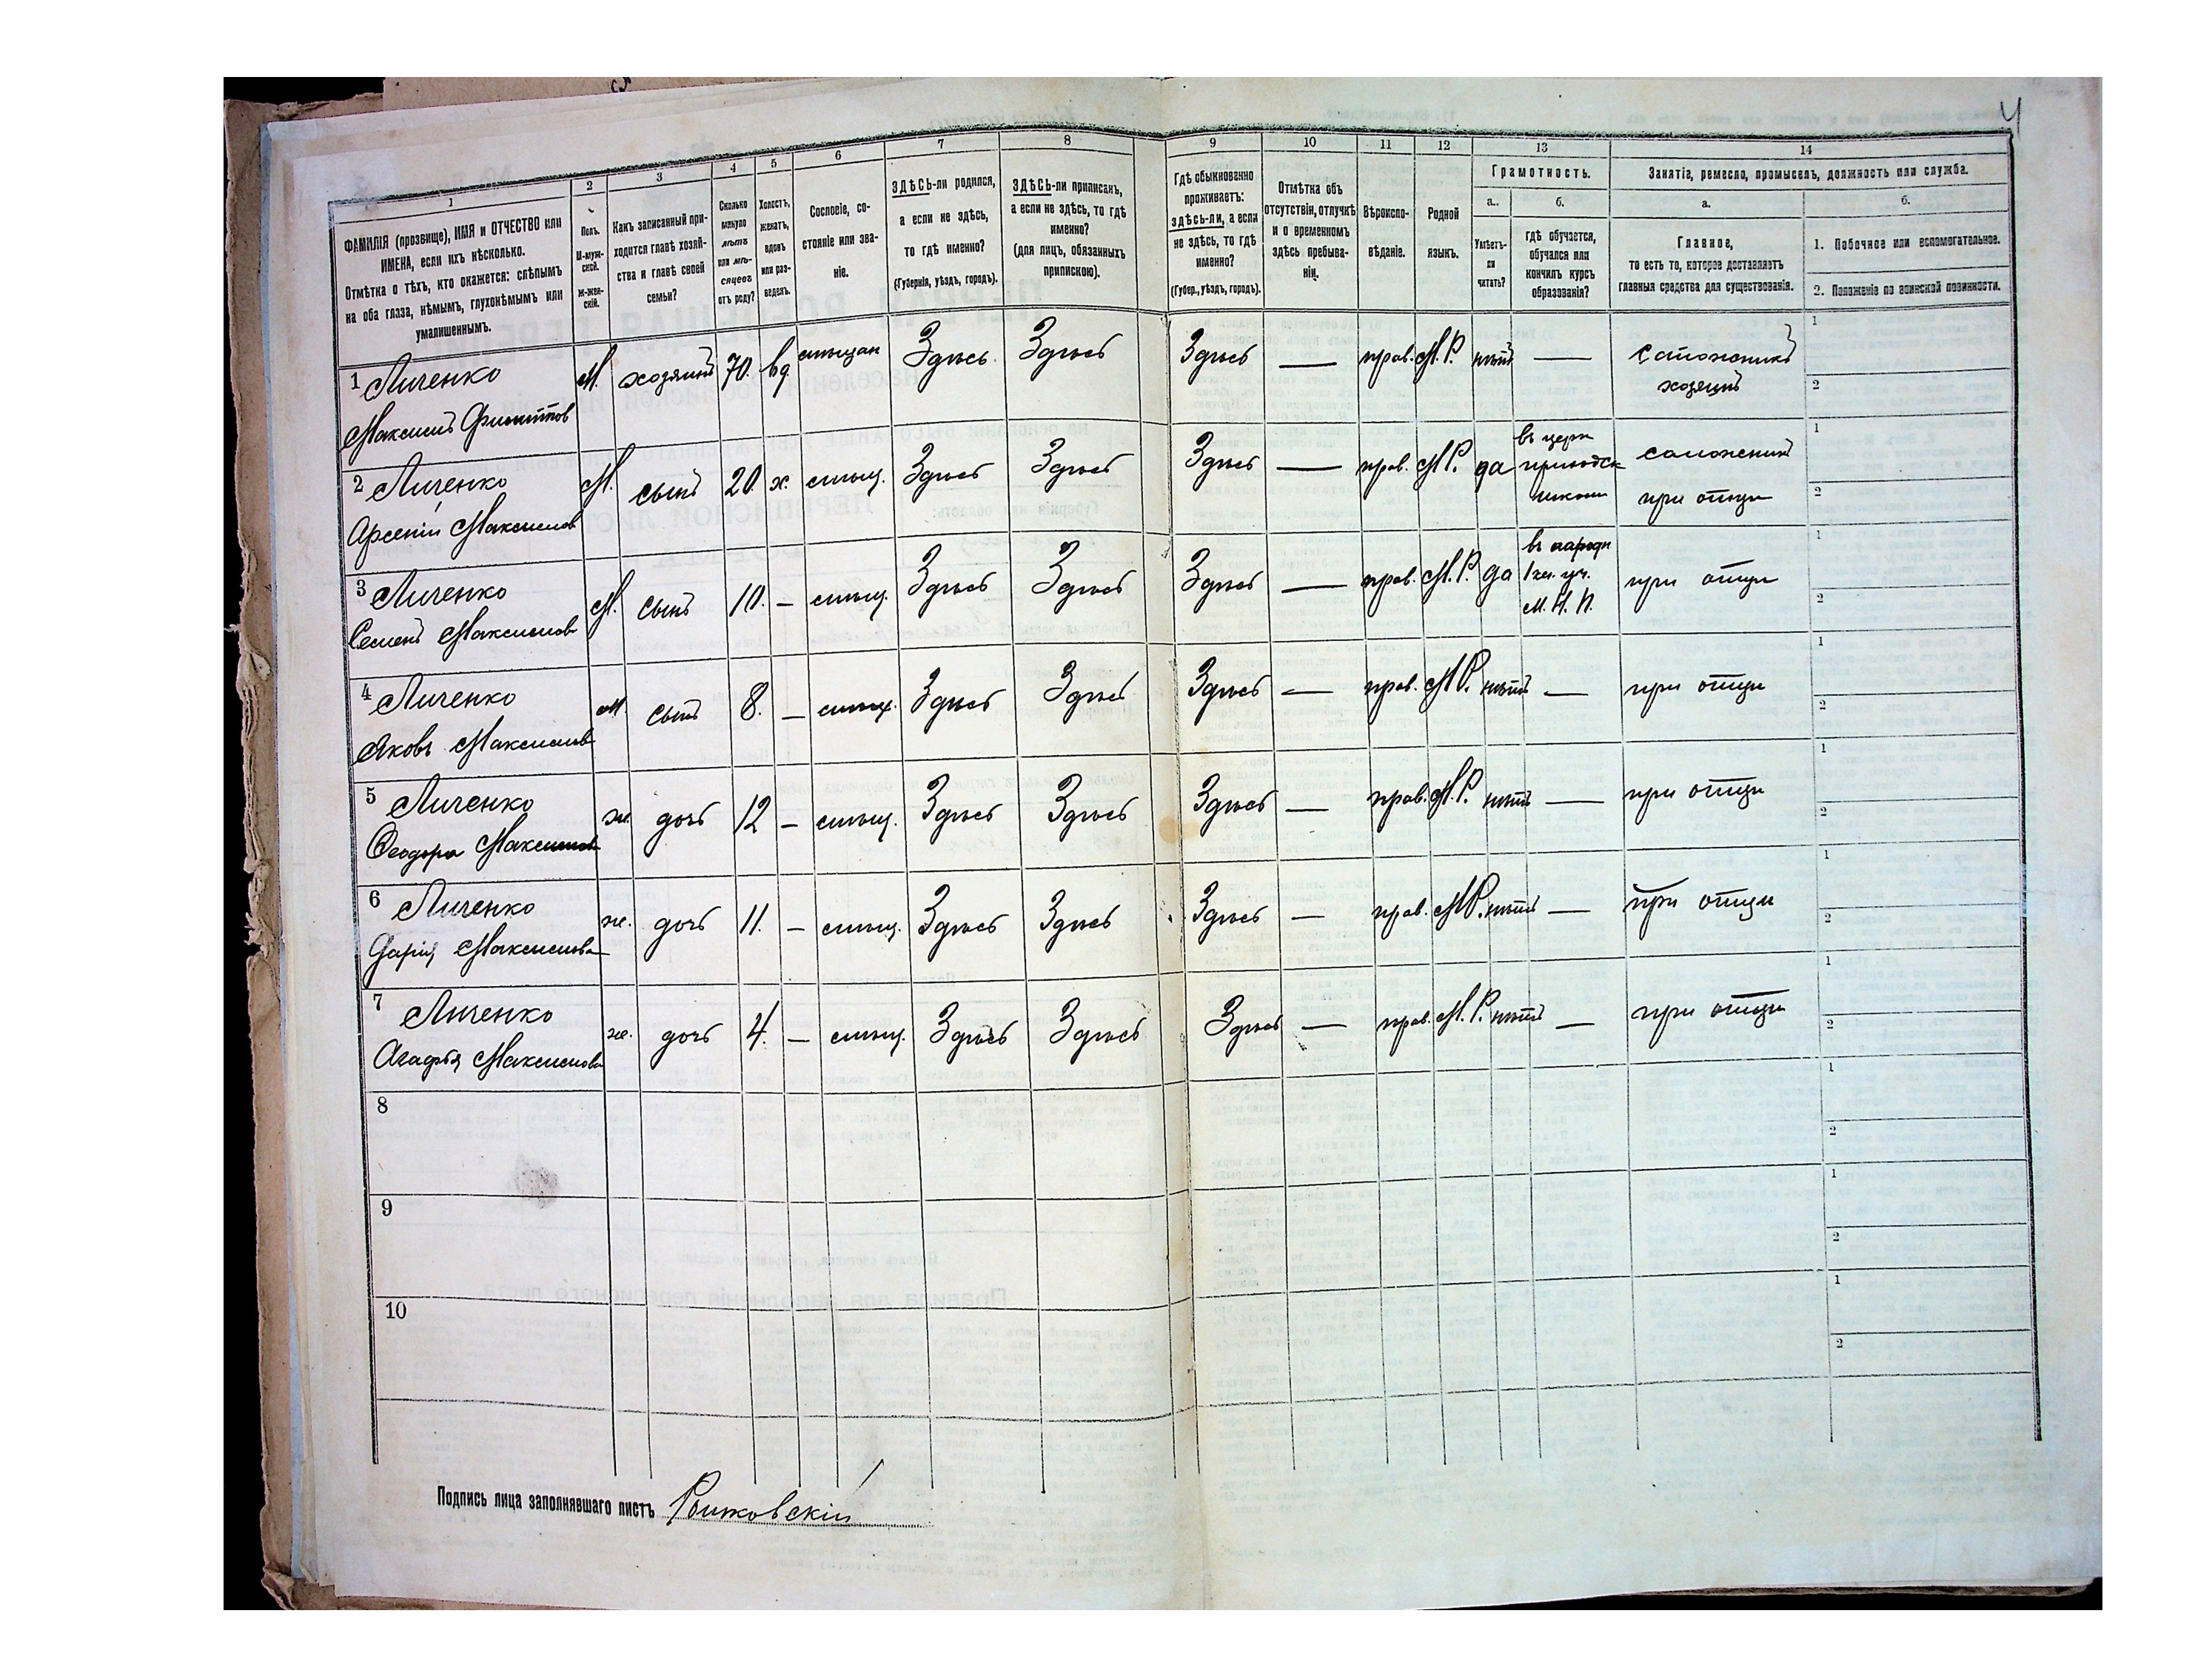 4
1 2 3 4 5 6 7 8 9 10 11 12 13 14
ФАМИЛІЯ (прозвище), ИМЯ и ОТЧЕСТВО или
ИМЕНА, если ихъ нѣсколько.
Отмѣтка о тѣхъ, кто окажется: слѣпымъ
на оба глаза, нѣмымъ, глухонѣмымъ или
умалишеннымъ.
Полъ.
М-муж-
ской.
Ж-жен-
скій.
Какъ записанный при-
ходится главѣ хозяй-
ства и главѣ своей
семьи?
Сколько
минуло
лѣтъ
или мѣ-
сяцевъ
отъ роду?
Холостъ,
женатъ,
вдовъ
или раз-
веденъ.
Сословіе, со-
стояніе или зва-
ніе.
ЗДѢСЬ-ли родился,
а если не здѣсь,
то гдѣ именно?
(Губернія, уѣздъ, городъ).
ЗДѢСЬ-ли приписанъ,
а если не здѣсь, то гдѣ
именно?
(для лицъ, обязанныхъ
припискою).
Гдѣ обыкновенно
проживаетъ:
здѣсь-ли, а если
не здѣсь, то гдѣ
именно?
(Губер., уѣздъ, городъ).
Отмѣтка объ
отсутствіи, отлучкѣ
и о временномъ
здѣсь пребыва-
ніи.
Вѣроиспо-
вѣданіе.
Родной
языкъ.
Грамотность.
а.
Умѣетъ-
ли
читать?
б.
Гдѣ обучается,
обучался или
кончилъ курсъ
образованія?
Занятіе, ремесло, промыселъ, должность или служба.
а.
Главное,
то есть то, которое доставляетъ
главныя средства для существованія.
б.
1. Побочное или вспомогательное.
2. Положеніе по воинской повинности.
1 Личенко М. хозяинъ 70. вд мѣщан Здѣсь Здѣсь Здѣсь — прав. М.Р. нѣтъ — сапожникъ 1
Максимъ хозяинъ 2
2 Личенко М. сынъ 20. х. мѣщ. Здѣсь Здѣсь Здѣсь — прав. М.Р. да въ церк сапожникъ 1
приходск
Арсеній Максимов школи при отци 2
3 Личенко М. сынъ 10. — мѣщ. Здѣсь Здѣсь Здѣсь — прав. М.Р. да въ народн при отци 1
1 кл. уч.
Семенъ Максимов М. Н. П. 2
4 Личенко М. сынъ 8. — мѣщ. Здѣсь Здѣсь Здѣсь — прав. М.Р. нѣтъ — при отци 1
Яковъ Максимов 2
5 Личенко ж. дочь 12 — мѣщ. Здѣсь Здѣсь Здѣсь — прав. М.Р. нѣтъ — при отци 1
Ѳеодора Максимов 2
6 Личенко ж. дочь 11. — мѣщ. Здѣсь Здѣсь Здѣсь — прав. М.Р. нѣтъ — при отци 1
Дарія Максимова 2
7 Личенко ж. дочь 4. — мѣщ. Здѣсь Здѣсь Здѣсь — прав. М.Р. нѣтъ — при отци 1
Агафія Максимова 2
8 1
2
9 1
2
10 1
2
Подпись лица заполнявшаго листъ Рыжовскій